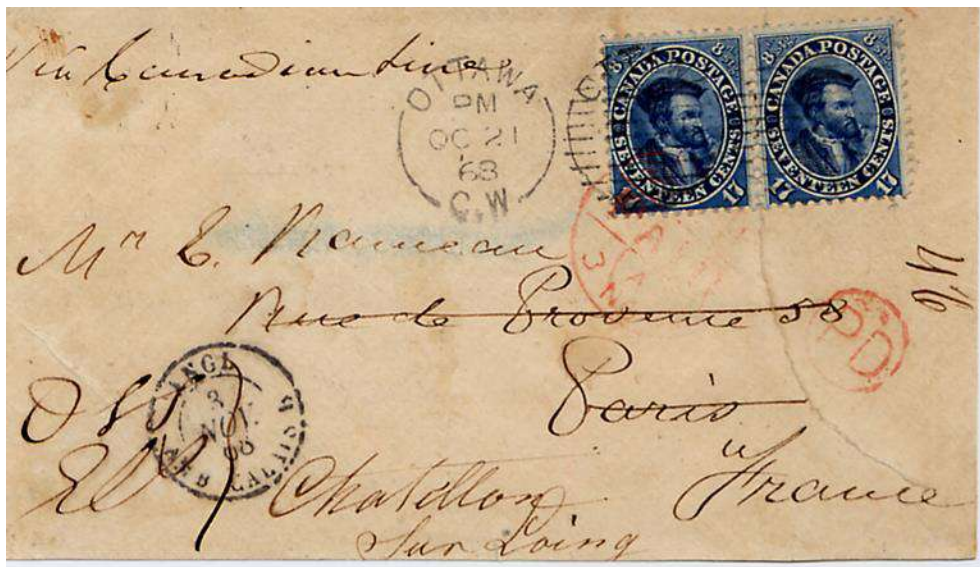 Via Canadian Line
OTTAWA
PM
OC 21
68
C.W
8d Stg
CANADA POSTAGE
SEVENTEEN CENTS
17 17
8d Stg
CANADA POSTAGE
SEVENTEEN CENTS
17 17
Mr E. Rameau
Rue de Provence 58
PD
Paris
ANGL
3
NOV
68
CALAIS
Chatillon
Sur Loing
France